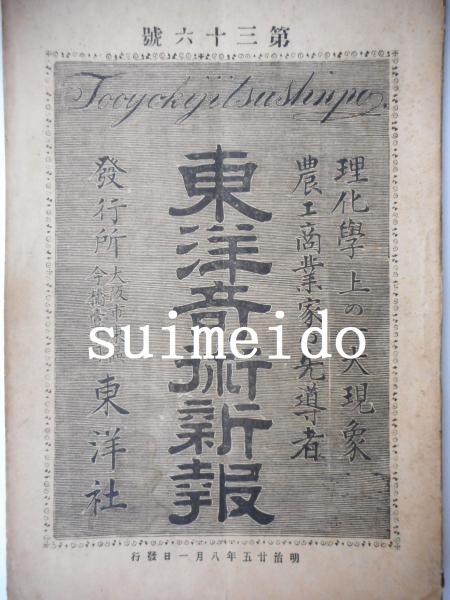 第三十六號
Tooyokijitsushinpo
理化學上の一大現象
農工商業家の先導者
東洋奇術新報
發行所
大阪市東區
今橋
東洋社
明治廿五年八月一日發行
suimeido